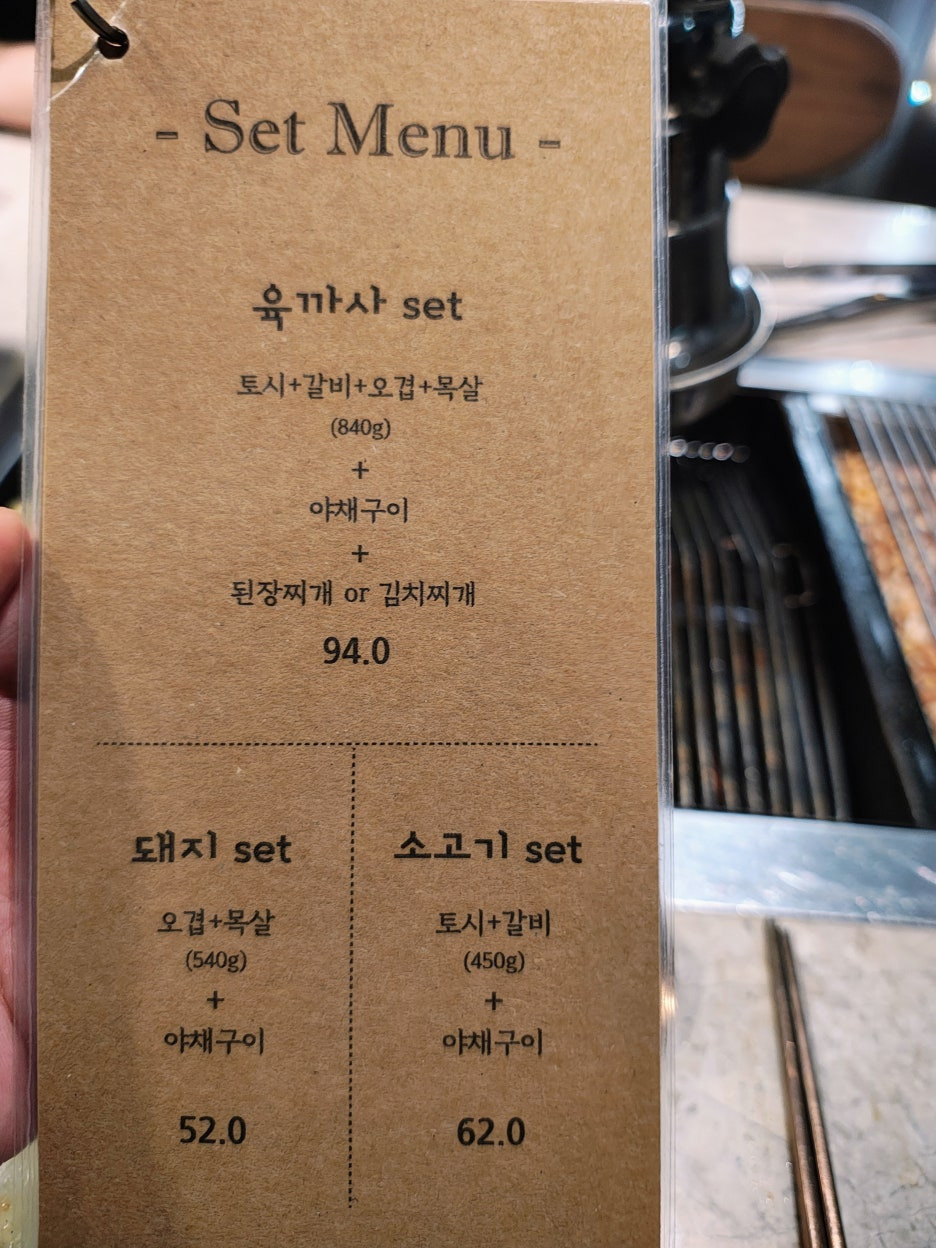 - Set Menu -
육까사 set
토시+갈비+오겹+목살
(840g)
+
야채구이
+
된장찌개 or 김치찌개
94.0
돼지 set
오겹+목살
(540g)
+
야채구이
52.0
소고기 set
토시+갈비
(450g)
+
야채구이
62.0